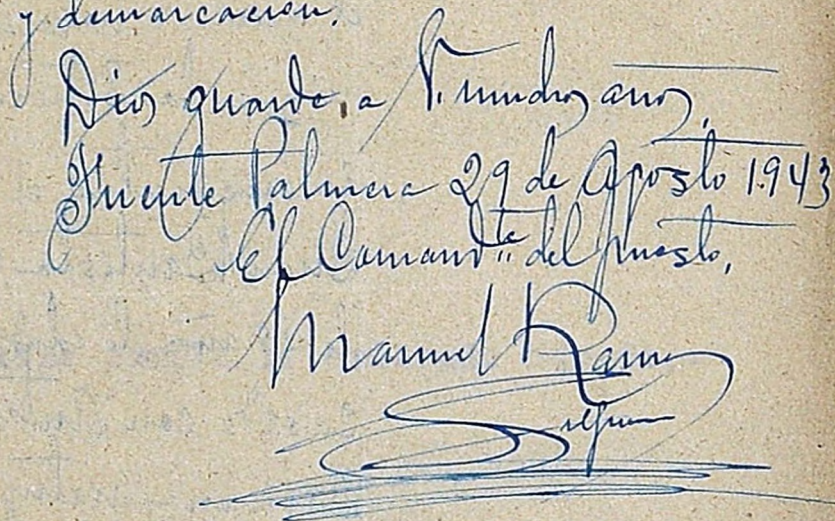 y demarcación.
Dios guarde a V. muchos años.
Fuente Palmera 29 de Agosto 1.943
El Comandte del puesto,
Manuel Ramos